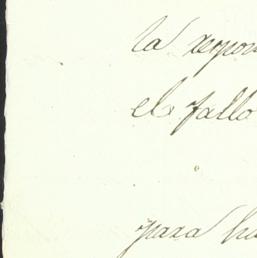 la respon
el fallo
para ha